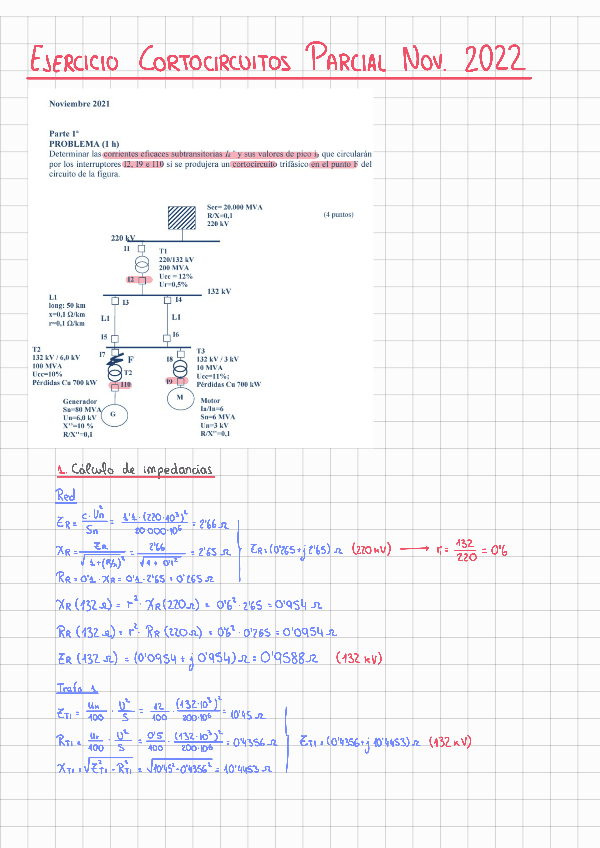 EJERCICIO CORTOCIRCUITOS PARCIAL NOV. 2022
Noviembre 2021
Parte 1ª
PROBLEMA (1 h)
Determinar las corrientes eficaces subtransitorias Ik'' y sus valores de pico ip que circularán
por los interruptores I2, I9 e I10 si se produjera un cortocircuito trifásico en el punto F del
circuito de la figura.
Scc= 20.000 MVA
R/X=0,1
220 kV
(4 puntos)
220 kV
I1
T1
220/132 kV
200 MVA
Ucc = 12%
Ur=0,5%
I2
132 kV
L1
long: 50 km
x=0,1 Ω/km
r=0,1 Ω/km
I3
I4
L1
L1
I5
I6
T2
132 kV / 6,0 kV
100 MVA
Ucc=10%
Pérdidas Cu 700 kW
I7
F
T2
I10
I8
I9
T3
132 kV / 3 kV
10 MVA
Ucc=11%;
Pérdidas Cu 700 kW
Generador
Sn=80 MVA
Un=6,0 kV
X''=10 %
R/X=0,1
G
M
Motor
Ia/In=6
Sn=6 MVA
Un=3 kV
R/X=0,1
1. Cálculo de impedancias
Red
ZR = c·Un²/Sn = 1'1·(220·10³)²/20000·10⁶ = 2'66 Ω
XR = ZR/√(1+(R/X)²) = 2'66/√(1+0'1²) = 2'65 Ω
ZR = (0'265+j2'65) Ω (220 kV) → r = 132/220 = 0'6
RR = 0'1·XR = 0'1·2'65 = 0'265 Ω
XR (132 Ω) = r²·XR (220 Ω) = 0'6²·2'65 = 0'954 Ω
RR (132 Ω) = r²·RR (220 Ω) = 0'6²·0'265 = 0'0954 Ω
ZR (132 Ω) = (0'0954 + j 0'954) Ω = 0'9588 Ω (132 kV)
Trafo 1
ZT1 = Uk/100 · U²/S = 12/100 · (132·10³)²/200·10⁶ = 10'45 Ω
RT1 = Ur/100 · U²/S = 0'5/100 · (132·10³)²/200·10⁶ = 0'4356 Ω
ZT1 = (0'4356+j10'4453) Ω (132 kV)
XT1 = √(ZT1² - RT1²) = √(10'45² - 0'4356²) = 10'4453 Ω